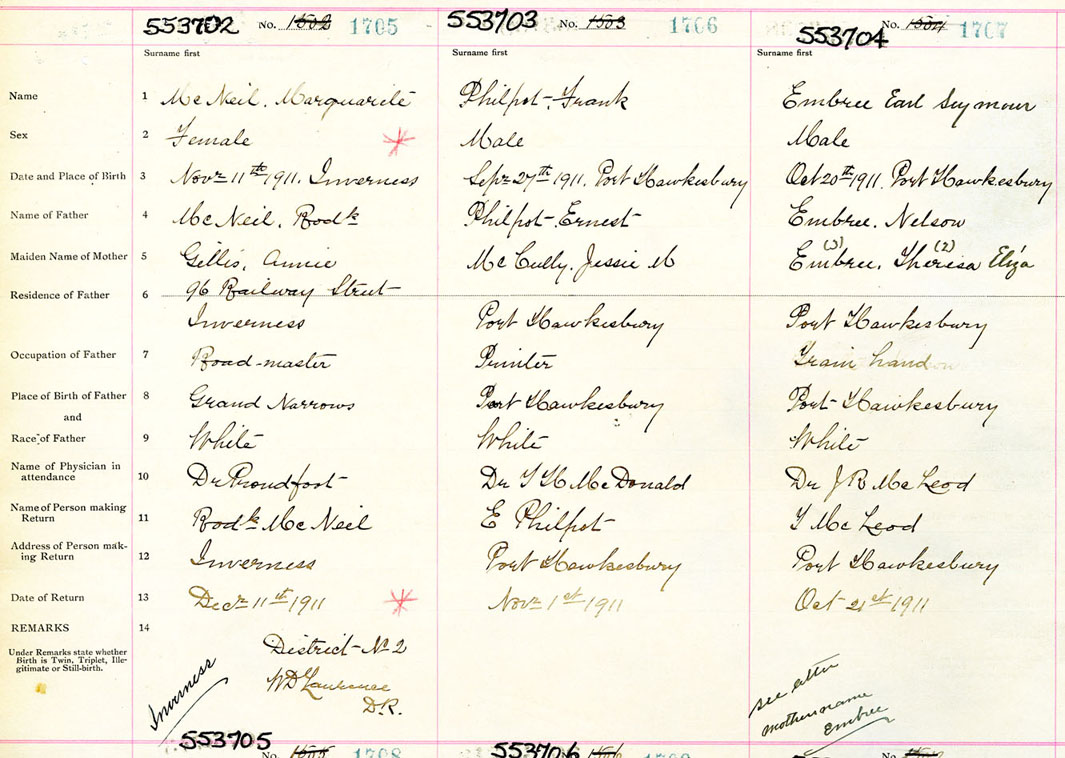 553702 No. 1502 1705
553703 No. 1503 1706
553704 No. 1504 1707
Surname first Surname first Surname first
Name 1 McNeil, Marguarite Philpot, Frank Embree Earl Seymour
Sex 2 Female Male Male
Date and Place of Birth 3 Novr 11th 1911, Inverness Sepr 27th 1911, Port Hawkesbury Oct 20th 1911, Port Hawkesbury
Name of Father 4 McNeil, Rodk Philpot Ernest Embree, Nelson
Maiden Name of Mother 5 Gillis, Annie McCully, Jessie M Embree, (3) Theresa (2) Eliza
Residence of Father 6 96 Railway Street
Inverness Port Hawkesbury Port Hawkesbury
Occupation of Father 7 Road-master Printer Train hand
Place of Birth of Father 8 Grand Narrows Port Hawkesbury Port Hawkesbury
and
Race of Father 9 White White White
Name of Physician in
attendance 10 Dr Proudfoot Dr McDonald Dr J R McLeod
Name of Person making
Return 11 Rodk McNeil E Philpot McLeod
Address of Person mak-
ing Return 12 Inverness Port Hawkesbury Port Hawkesbury
Date of Return 13 Decr 11th 1911 Novr 1st 1911 Oct 21st 1911
REMARKS 14
Under Remarks state whether
Birth is Twin, Triplet, Ille-
gitimate or Still-birth.
District No 2
W D Lawrence
D.R.
Inverness
see letter
mothers name
Embree
553705 No. 1505 1708
553706 No.
No.